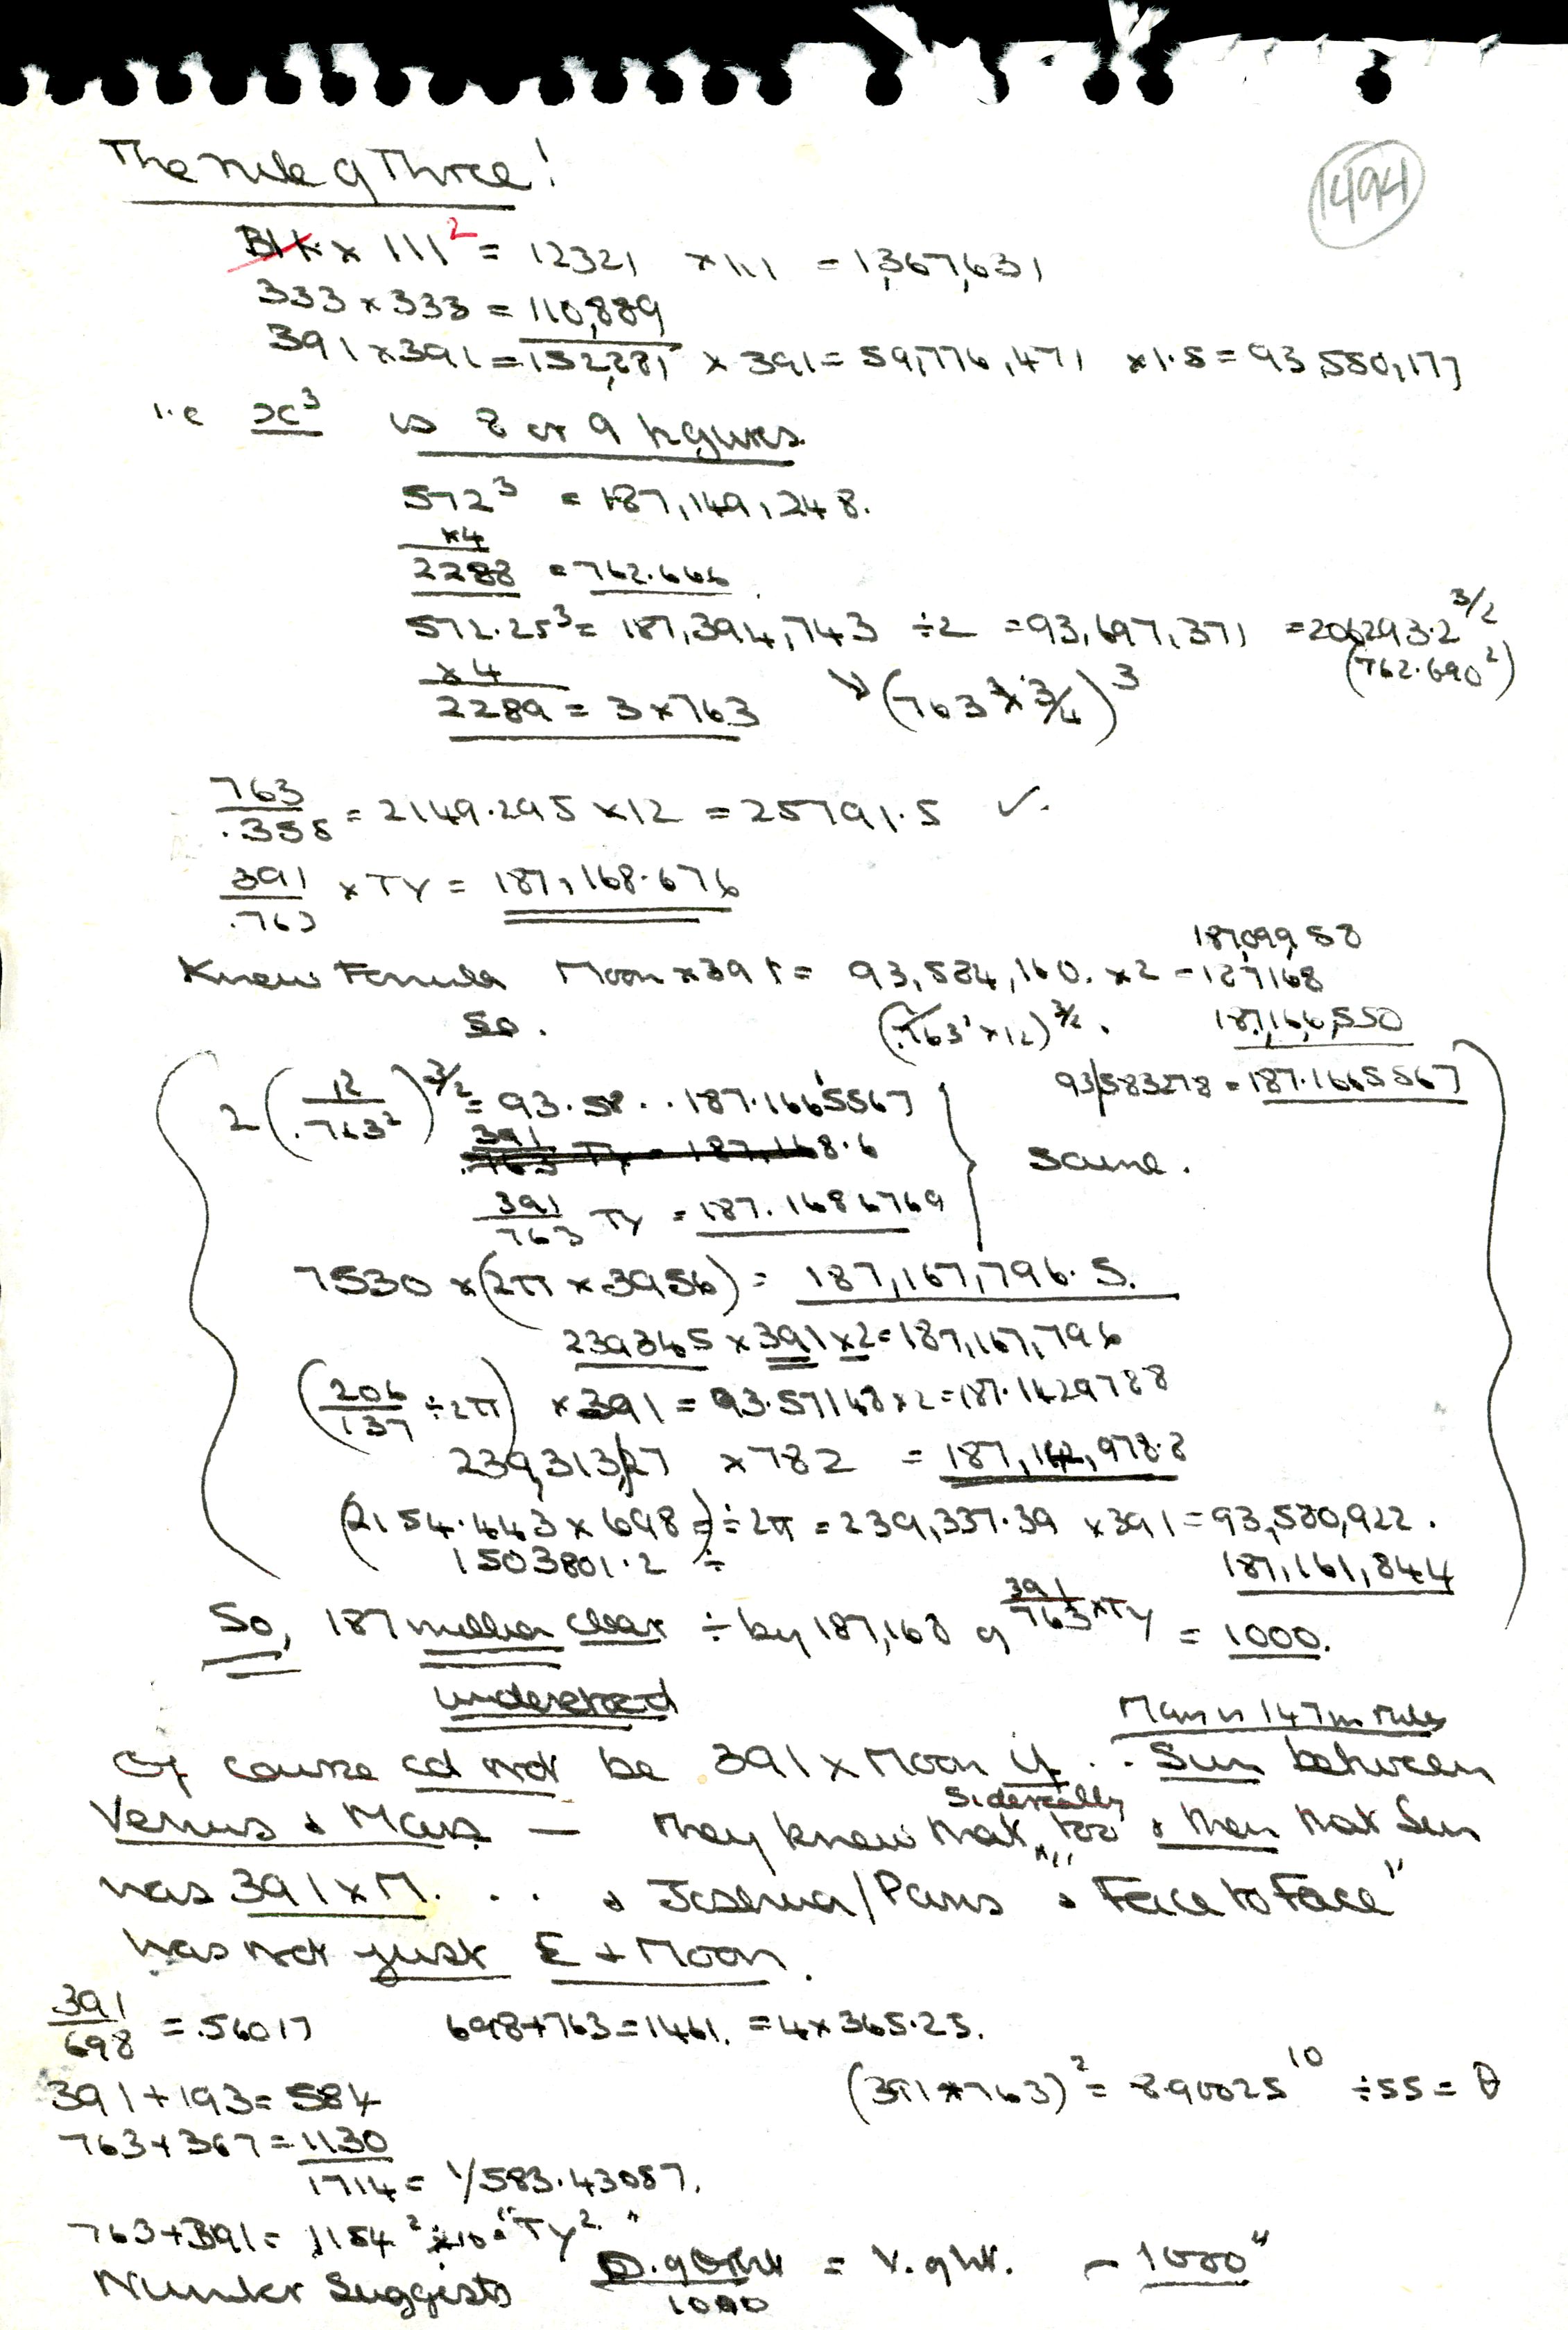 The rule of Three!
1494
111² = 12321 x 111 = 1,367,631
333 x 333 = 110,889
391 x 391 = 152,881 x 391 = 59,776,471 x 1.5 = 93,550,177
i.e x³ is 8 or 9 figures.
572³ = 187,149,248.
x4
2288 = 762.666
572.25³ = 187,394,743 ÷2 = 93,697,371 = 206293.2^3/2
(762.690²)
x 4
2289 = 3 x 763 (763 x 3/4)³
763/.355 = 2149.295 x 12 = 25791.5 ✓.
391/.763 x TY = 187,168.676
187,099,58
Knew Formula Moon x 391 = 93,584,160. x 2 = 187168
So. (.763² x 12)^3/2. 187,166,550
93,583278 = 187.1665567
2(12/.763²)^3/2 = 93.58.. 187.1665567
391/763 TY = 187,168.6
Same.
391/763 TY = 187.1686769
7530 x (2π x 3956) = 187,167,796.5.
239365 x 391 x 2 = 187,167,796
(206/137 ÷ 2π) x 391 = 93.57148 x 2 = 187.1429788
239,313,27 x 782 = 187,142,978.8
(2154.443 x 698 =) ÷ 2π = 239,337.39 x 391 = 93,580,922.
1503801.2 ÷ 187,161,844
So, 187 million clear ÷ by 187,168 of 391/763 x TY = 1000.
undersked
Mars is 147m miles
Of course cd not be 391 x Moon if .. Sun between
Venus & Mars — They knew that Sidereally too & then that Sun
was 391 x M. . . & Joshua/Paris "Face to Face"
was not just E + Moon.
391/698 = .56017 698 + 763 = 1461. = 4 x 365.25.
391 + 193 = 584 (391 x 763)² = 8.90025^10 ÷ 55 = θ
763 + 367 = 1130
1714 = 1/583.43057.
763 + 391 = 1154² x 10 = "TY²."
Number Suggests /1000 = - 1000"